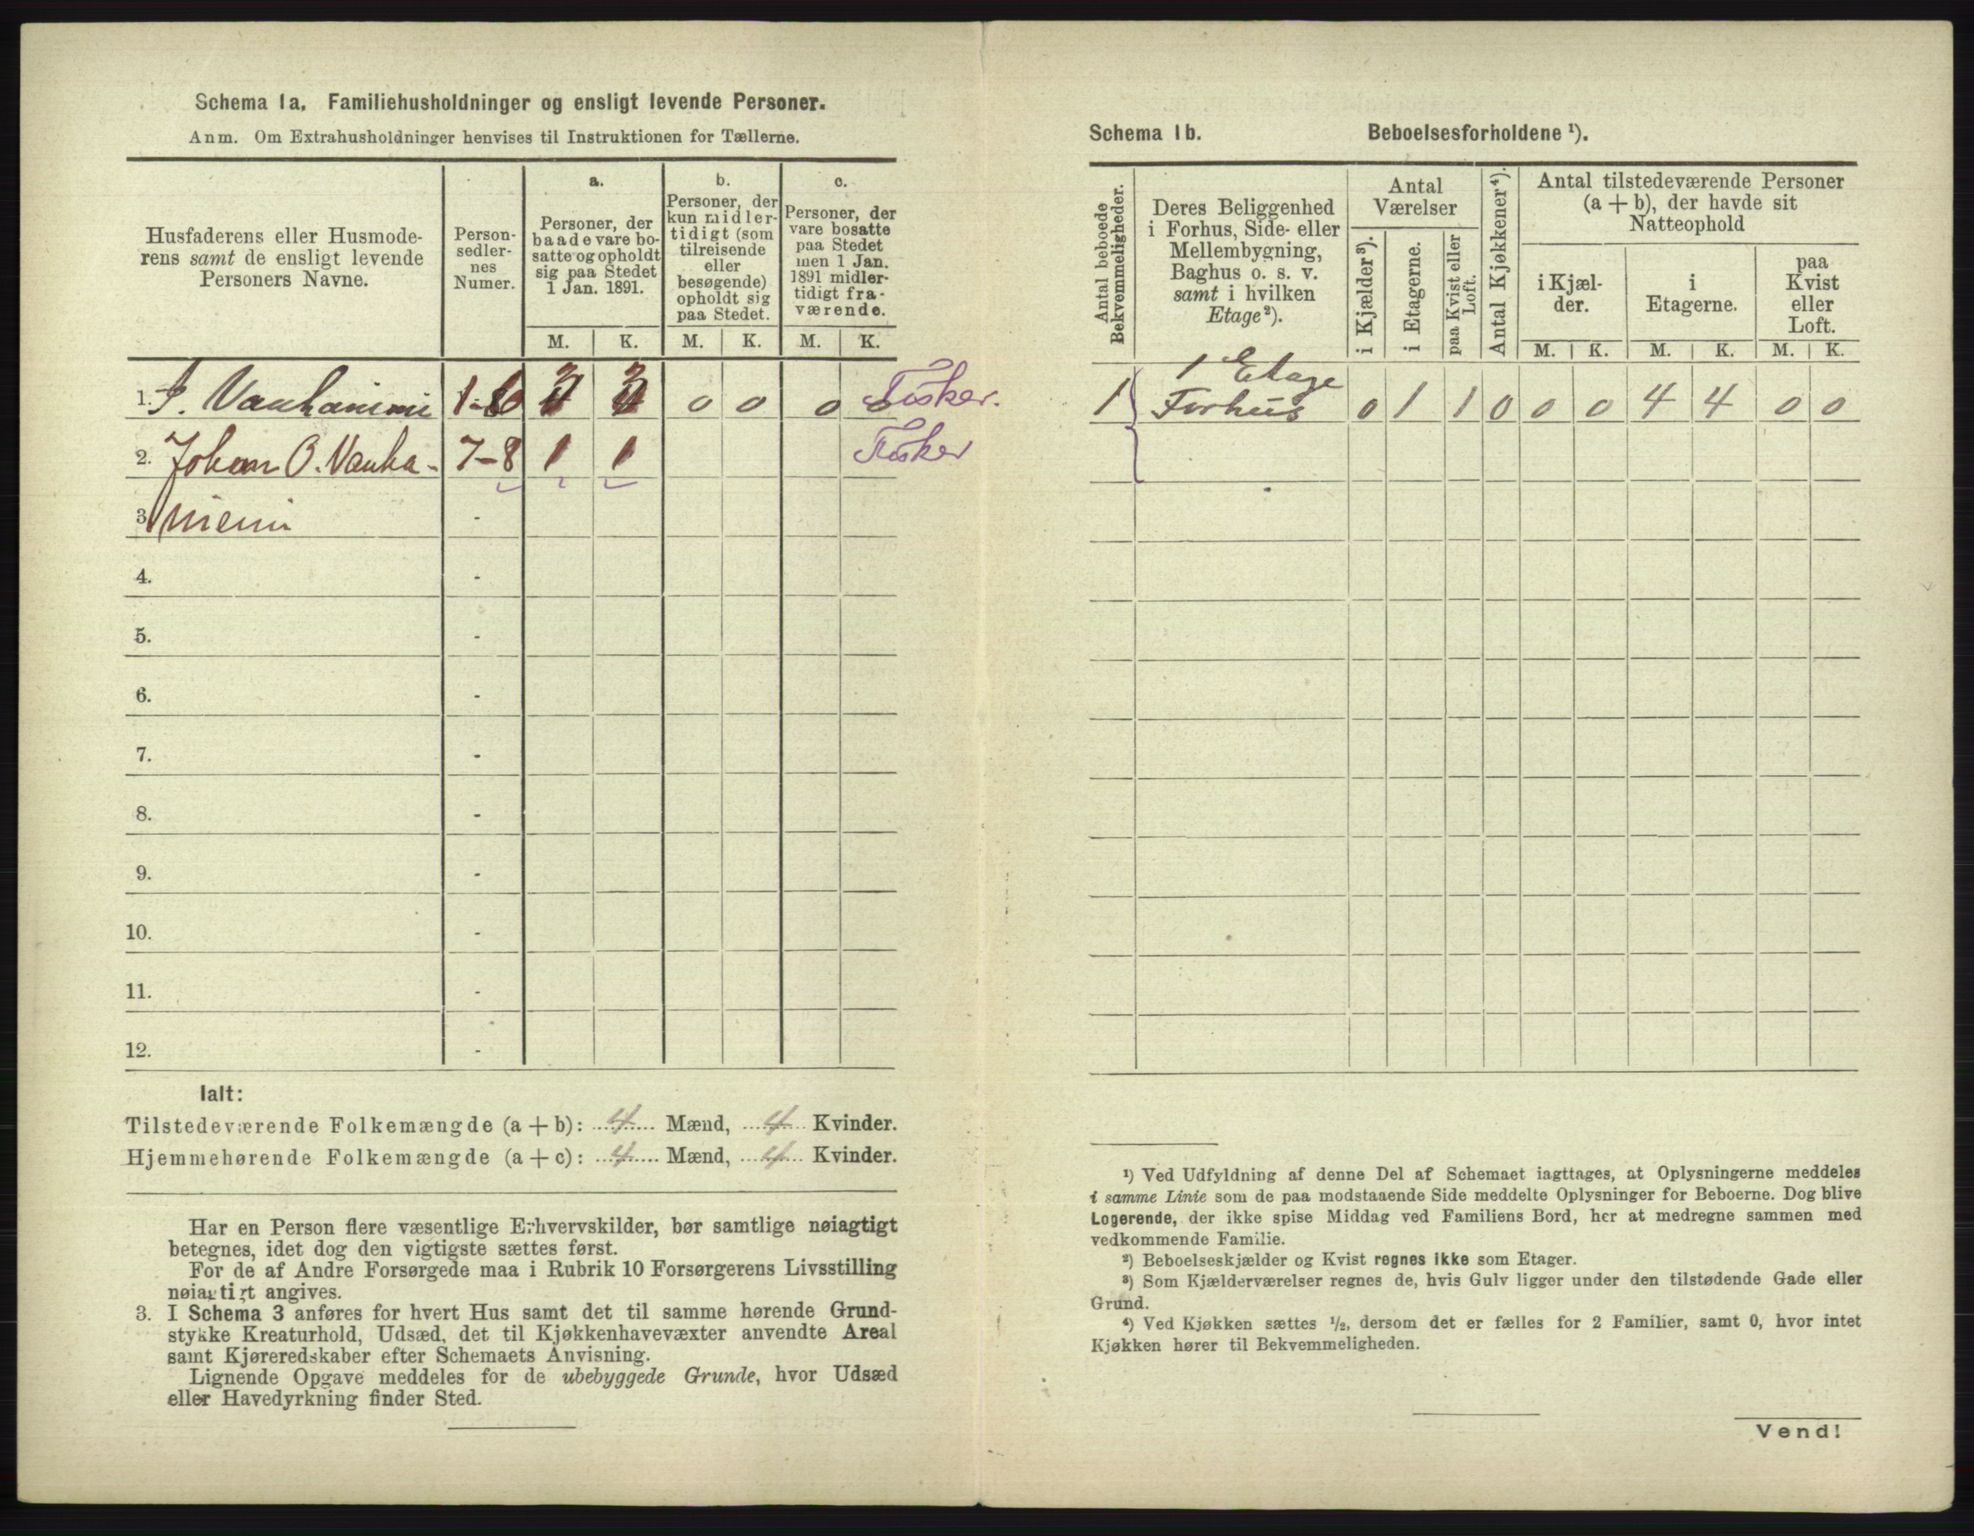 Schema 1a. Familiehusholdninger og ensligt levende Personer.
Anm. Om Extrahusholdninger henvises til Instruktionen for Tællerne.
Husfaderens eller Husmode-
rens samt de ensligt levende
Personers Navne.
Person-
sedler-
nes
Numer.
a.
Personer, der
baade vare bo-
satte og opholdt
sig paa Stedet
1 Jan. 1891.
b.
Personer, der
kun midler-
tidigt (som
tilreisende
eller
besøgende)
opholdt sig
paa Stedet.
c.
Personer, der
vare bosatte
paa Stedet
men 1 Jan.
1891 midler-
tidigt fra-
værende.
M. K. M. K. M. K.
1. Vanhaniemi 1-6 3 3 0 0 0 0 Fisker.
2. Johan O. Vanha- 7-8 1 1 Fisker
3. niemi -
4. -
5. -
6. -
7. -
8. -
9. -
10. -
11. -
12. -
Ialt:
Tilstedeværende Folkemængde (a + b): 4 Mænd, 4 Kvinder.
Hjemmehørende Folkemængde (a + c): 4 Mænd, 4 Kvinder.
Har en Person flere væsentlige Erhvervskilder, bør samtlige nøiagtigt
betegnes, idet dog den vigtigste sættes først.
For de af Andre Forsørgede maa i Rubrik 10 Forsørgerens Livsstilling
nøiagtigt angives.
3. I Schema 3 anføres for hvert Hus samt det til samme hørende Grund-
stykke Kreaturhold, Udsæd, det til Kjøkkenhavevæxter anvendte Areal
samt Kjøreredskaber efter Schemaets Anvisning.
Lignende Opgave meddeles for de ubebyggede Grunde, hvor Udsæd
eller Havedyrkning finder Sted.
Schema 1b. Beboelsesforholdene ¹).
Antal beboede
Bekvemmeligheder.
Deres Beliggenhed
i Forhus, Side- eller
Mellembygning,
Baghus o. s. v.
samt i hvilken
Etage²).
Antal
Værelser
i Kjælder³).
i Etagerne.
paa Kvist eller
Loft.
Antal Kjøkkener⁴).
Antal tilstedeværende Personer
(a + b), der havde sit
Natteophold
i Kjæl-
der.
i
Etagerne.
paa
Kvist
eller
Loft.
M. K. M. K. M. K.
1 Etage
1 Forhus 0 1 1 0 0 0 4 4 0 0
¹) Ved Udfyldning af denne Del af Schemaet iagttages, at Oplysningerne meddeles
i samme Linie som de paa modstaaende Side meddelte Oplysninger for Beboerne. Dog blive
Logerende, der ikke spise Middag ved Familiens Bord, her at medregne sammen med
vedkommende Familie.
²) Beboelseskjælder og Kvist regnes ikke som Etager.
³) Som Kjælderværelser regnes de, hvis Gulv ligger under den tilstødende Gade eller
Grund.
⁴) Ved Kjøkken sættes ½, dersom det er fælles for 2 Familier, samt 0, hvor intet
Kjøkken hører til Bekvemmeligheden.
Vend!